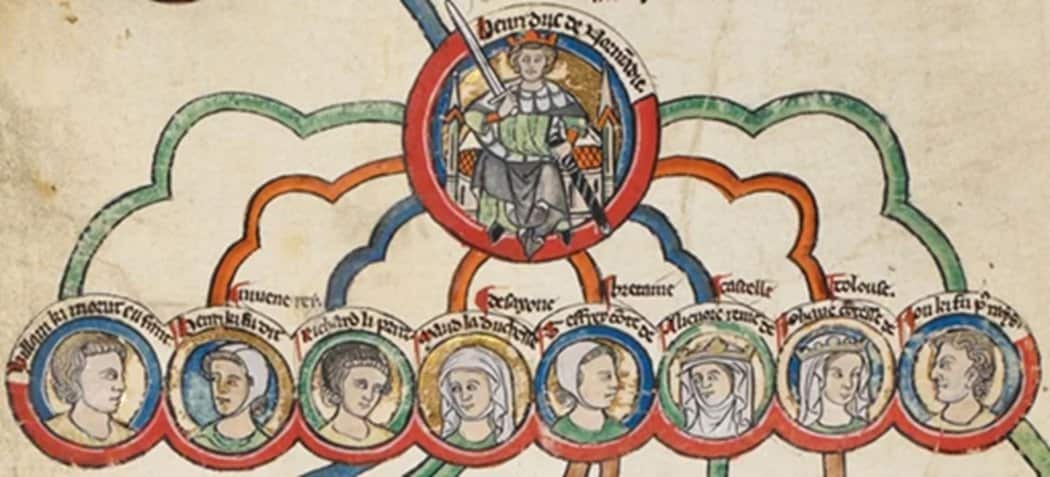 henri duc de Normãdie.
iuvene rei.
de saxone
bretaine
castelle
tolouse.
Willam ki morut en
henri ki fu dit
Richard li
Maud la duchesse
Geffrey cõte de
Alienore reine de
Johane cõtesse de
Jon ki fu